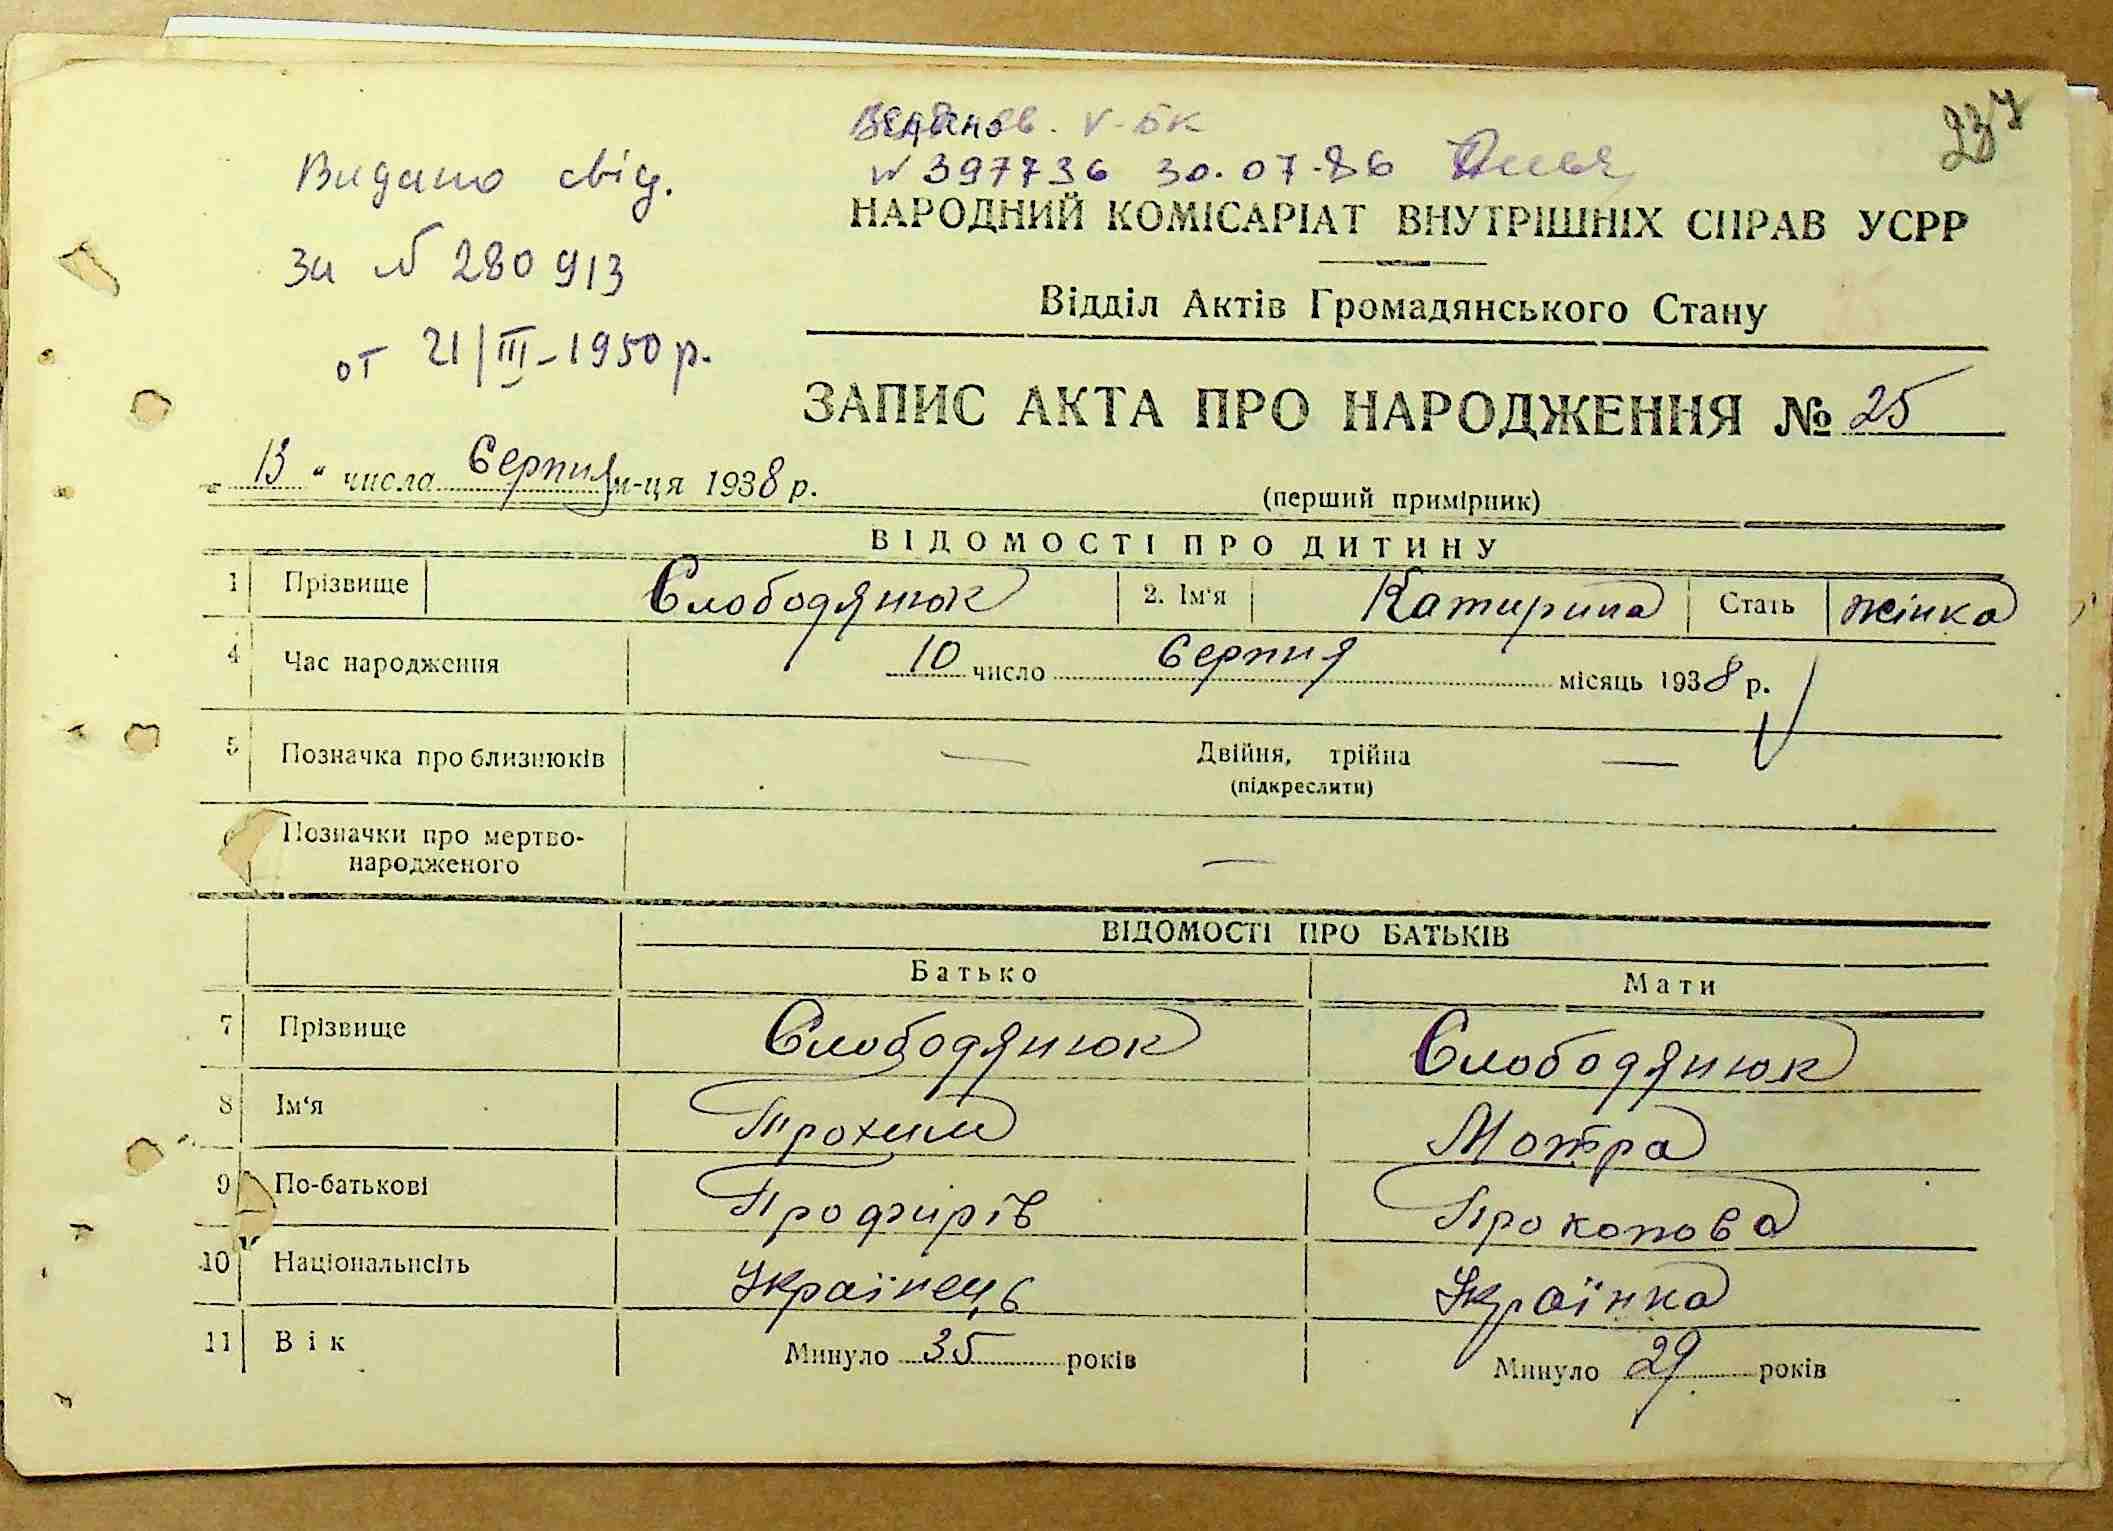 237
V-БК
№ 397736 30.07.86
Видано свід.
за № 280913
от 21/III-1950 р.
НАРОДНИЙ КОМІСАРІАТ ВНУТРІШНІХ СПРАВ УСРР
Відділ Актів Громадянського Стану
ЗАПИС АКТА ПРО НАРОДЖЕННЯ № 25
„ 13 “ числа Серпня м-ця 1938 р.
(перший примірник)
ВІДОМОСТІ ПРО ДИТИНУ
1 Прізвище Слободянюк 2. Ім'я Катирина Стать жінка
4 Час народження 10 число Серпня місяць 1938 р.
5 Позначка про близнюків — Двійня, трійна —
(підкреслити)
6 Позначки про мертво-
народженого —
ВІДОМОСТІ ПРО БАТЬКІВ
Батько Мати
7 Прізвище Слободянюк Слободянюк
8 Ім'я Трохим Мотра
9 По-батькові Профирів Прокопова
10 Національність Українець Українка
11 Вік Минуло 35 років Минуло 29 років